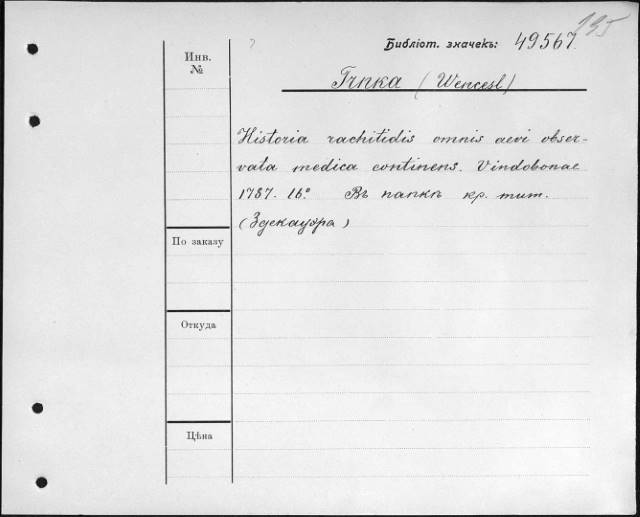 195
Библіот. значекъ: 49567.
Инв.
№
Trnka (Wencesl)
Historia rachitidis omnis aevi obser-
vata medica continens. Vindobonae
1787. 16.° Въ папкѣ кр. тит.
(Здекауэра)
По заказу
Откуда
Цѣна